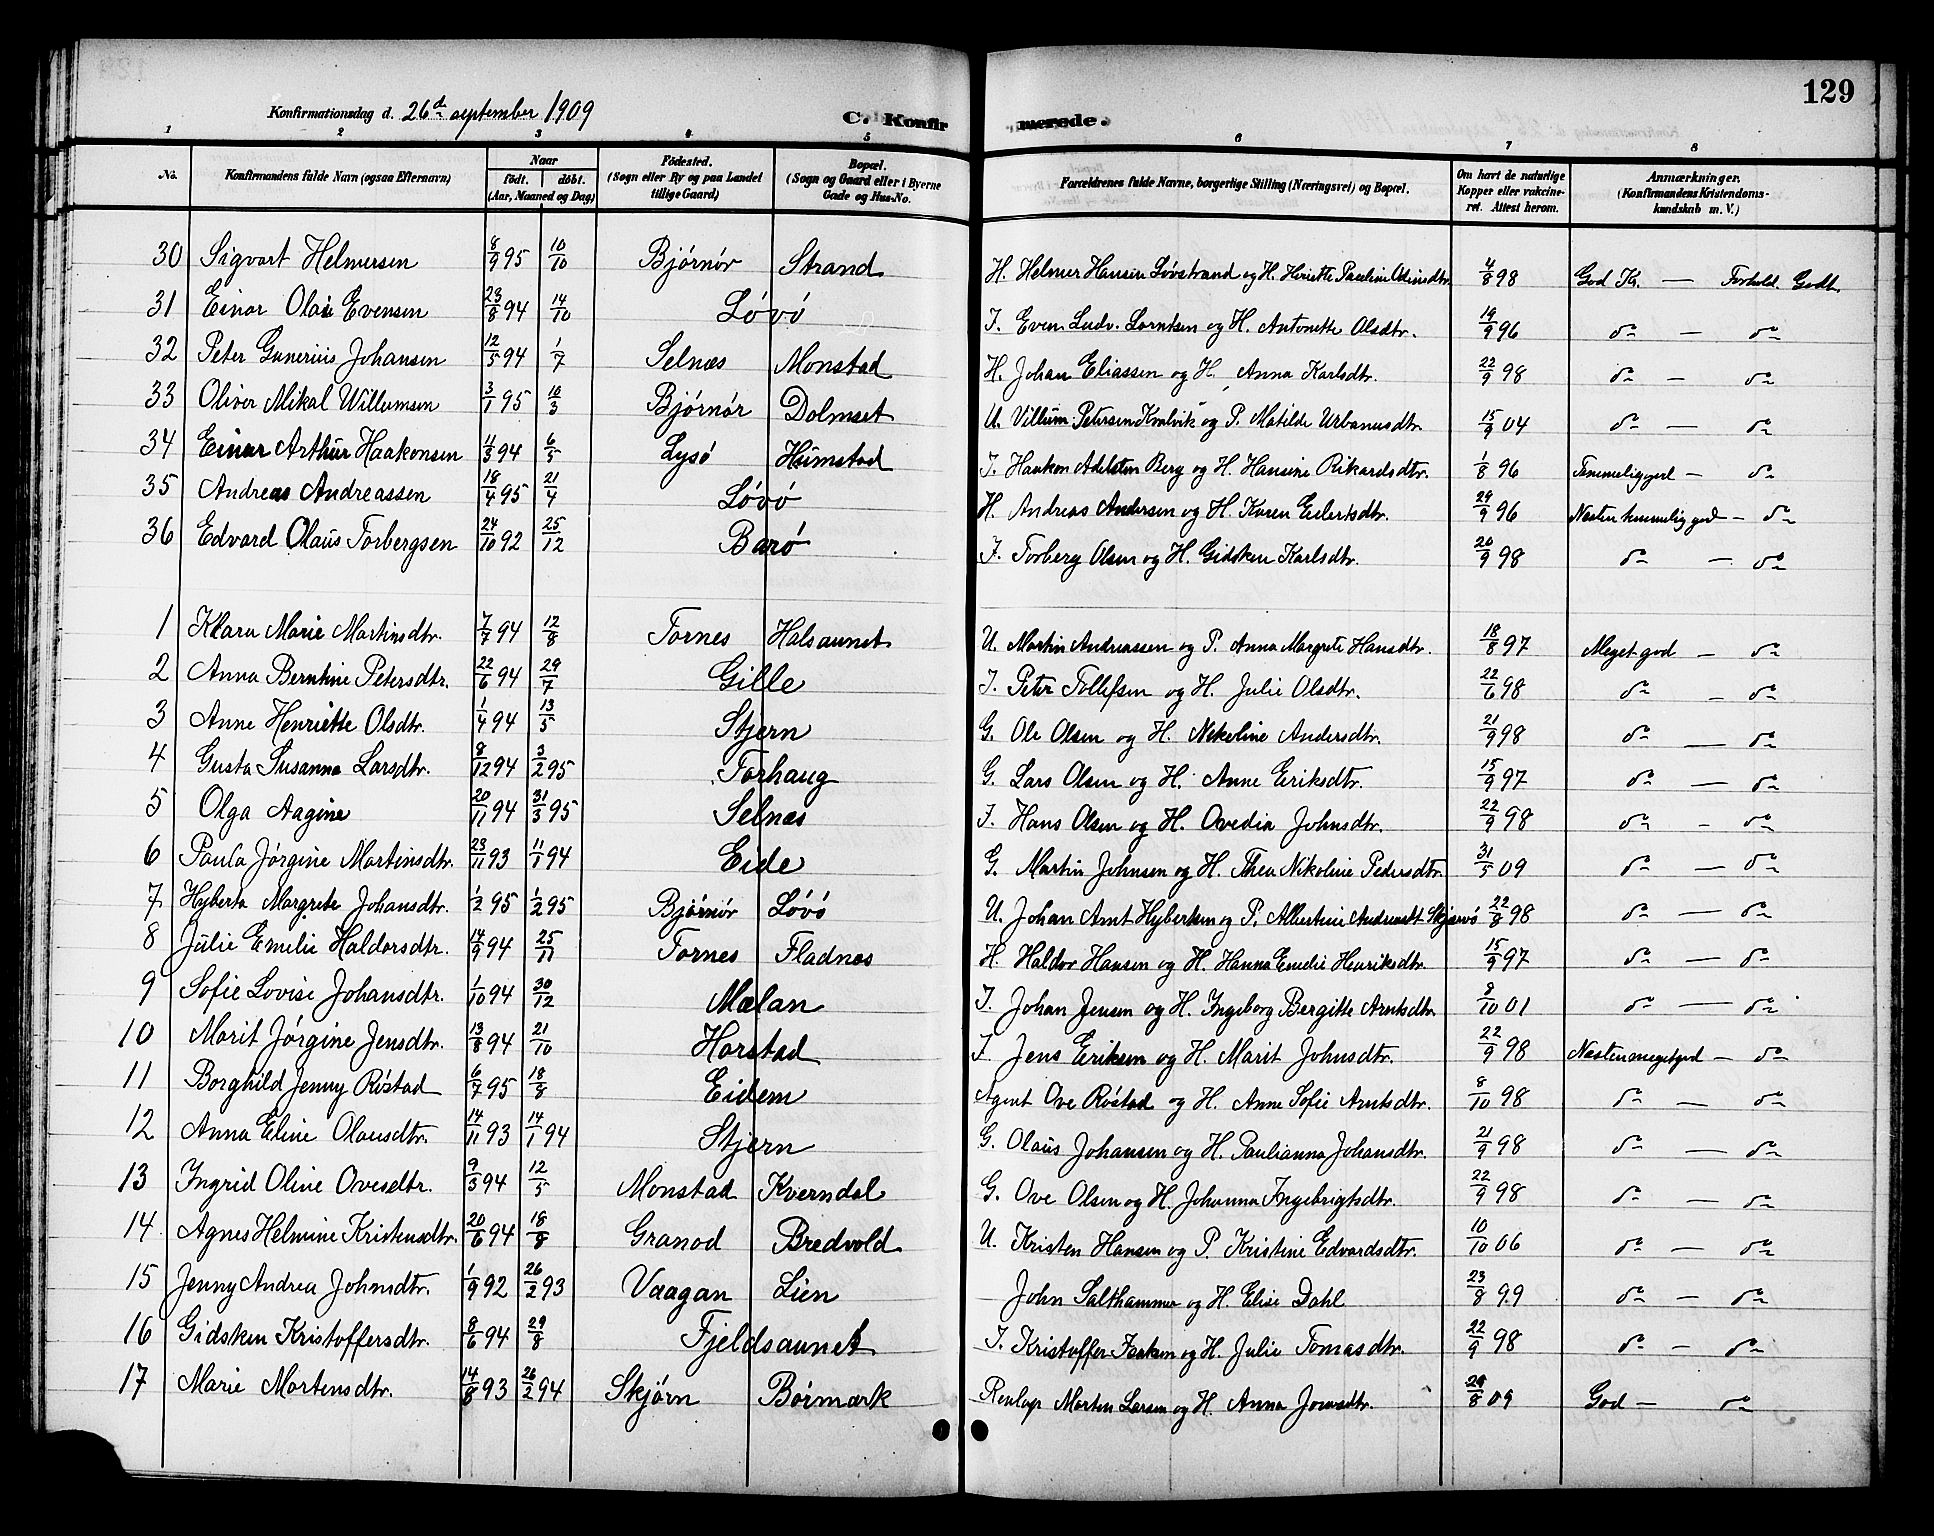 129
Konfirmationsdag d. 26d september 1909
C. Konfirmerede.
1 2 3 4 5 6 7 8
No. Konfirmandens fulde Navn (ogsaa Efternavn) Naar født. døbt. (Aar, Maaned og Dag) Fødested. (Sogn eller By og paa Landet tillige Gaard) Bopæl. (Sogn og Gaard eller i Byerne Gade og Hus-No. Forældrenes fulde Navne, borgerlige Stilling (Næringsvei) og Bopæl. Om havt de naturlige Kopper eller vakcineret. Attest herom. Anmærkninger. (Konfirmandens Kristendomskundskab m. V.)
30 Sigvart Helmersen 8/9 95 10/10 Bjørnør Strand H. Helmer Hansen Løvstrand og H. Henriette Pauline Odinsdtr. 4/8 98 God K. — Forhold. Godt
31 Einar Olai Evensen 23/8 94 14/10 Løvø I. Even Ludv. Lorntsen og H. Antonette Olsdtr. 19/9 96 do — do
32 Peter Gunerius Johansen 12/5 94 1/7 Selnæs Monstad H. Johan Eliassen og H. Anna Karlsdtr. 22/9 98 do — do
33 Oliver Mikal Willumsen 3/1 95 10/3 Bjørnør Dolmset U. Villum Petersen Kvalvik og P. Matilde Urbanusdtr. 15/9 04 do — do
34 Einar Arthur Haakonsen 4/3 94 6/5 Lysø Humstad I. Haakon Adelsten Berg og H. Hansine Rikardsdtr. 1/8 96 Temmelig god — do
35 Andreas Andreassen 18/4 95 21/4 Løvø H. Andreas Andersen og H. Karen Eilertsdtr. 29/9 96 Næsten temmelig god — do
36 Edvard Olaus Torbergsen 24/10 92 25/12 Barø I. Torberg Olsen og H. Gidsken Karlsdtr. 20/9 98 do — do
1 Klara Marie Martinsdtr. 7/7 94 12/8 Tornes Halsaunet U. Martin Andreassen og P. Anna Margrete Hansdtr. 18/8 97 Meget god — do
2 Anna Berntine Petersdtr. 22/6 94 29/7 Gille I. Peter Tollefsen og H. Julie Olsdtr. 22/6 98 do — do
3 Anne Henriette Olsdtr. 1/4 94 13/5 Stjern G. Ole Olsen og H. Nekoline Andersdtr. 21/9 98 do — do
4 Gusta Susanna Larsdtr. 8/12 94 3/2 95 Torhaug G. Lars Olsen og H. Anne Eriksdtr. 15/9 97 do — do
5 Olga Aagine 20/11 94 31/3 95 Selnæs I. Hans Olsen og H. Ovedia Johnsdtr. 22/9 98 do — do
6 Paula Jørgine Martinsdtr. 23/11 93 11/1 94 Eide G. Martin Johnsen og H. Thea Nikoline Pedersdtr. 31/5 09 do — do
7 Hyberta Margrete Johansdtr. 1/2 95 1/2 95 Bjørnør Løvø U. Johan Arnt Hybertsen og P. Albertine Andreasdt Skjærvø 22/8 98 do — do
8 Julie Emelie Haldorsdtr. 14/9 94 25/11 Tornes Fladnes H. Haldor Hansen og H. Hanna Emelie Henriksdtr. 15/9 97 do — do
9 Sofie Lovise Johansdtr. 1/10 94 30/12 Mælan I. Johan Jensen og H. Ingeborg Bergitte Arntsdtr 8/10 01 do — do
10 Marit Jørgine Jensdtr. 13/8 94 21/10 Harstad I. Jens Eriksen og H. Marit Johnsdtr. 22/9 98 Næsten meget god — do
11 Borghild Jenny Røstad 6/7 95 18/8 Eidem Agent Ove Røstad og H. Anne Sofie Arntsdtr. 8/10 98 do — do
12 Anna Eline Olausdtr. 14/11 93 14/1 94 Stjern G. Olaus Johansen og H. Paulianna Johansdtr. 21/9 98 do — do
13 Ingrid Oline Ovesdtr. 9/3 94 12/5 Monstad Kverndal G. Ove Olsen og H. Johanna Ingebrigtsdtr. 22/9 98 do — do
14 Agnes Helmine Kristensdtr. 20/6 94 18/8 Granod Bredvold U. Kristen Hansen og P. Kristine Edvardsdtr. 10/10 06 do — do
15 Jenny Andrea Johnsdtr. 1/9 92 26/2 93 Vaagan Lien John Salthammer og H. Elise Dahl 23/8 99 do — do
16 Gidsken Kristoffersdtr. 8/6 94 29/8 Fjeldsaunet I. Kristoffer Isaksen og H. Julie Tomasdtr. 22/9 98 do — do
17 Marie Mortensdtr. 14/8 93 26/2 94 Skjørn Børmark Morten Larsen og H. Anna Jonasdtr. 24/8 09 God — do